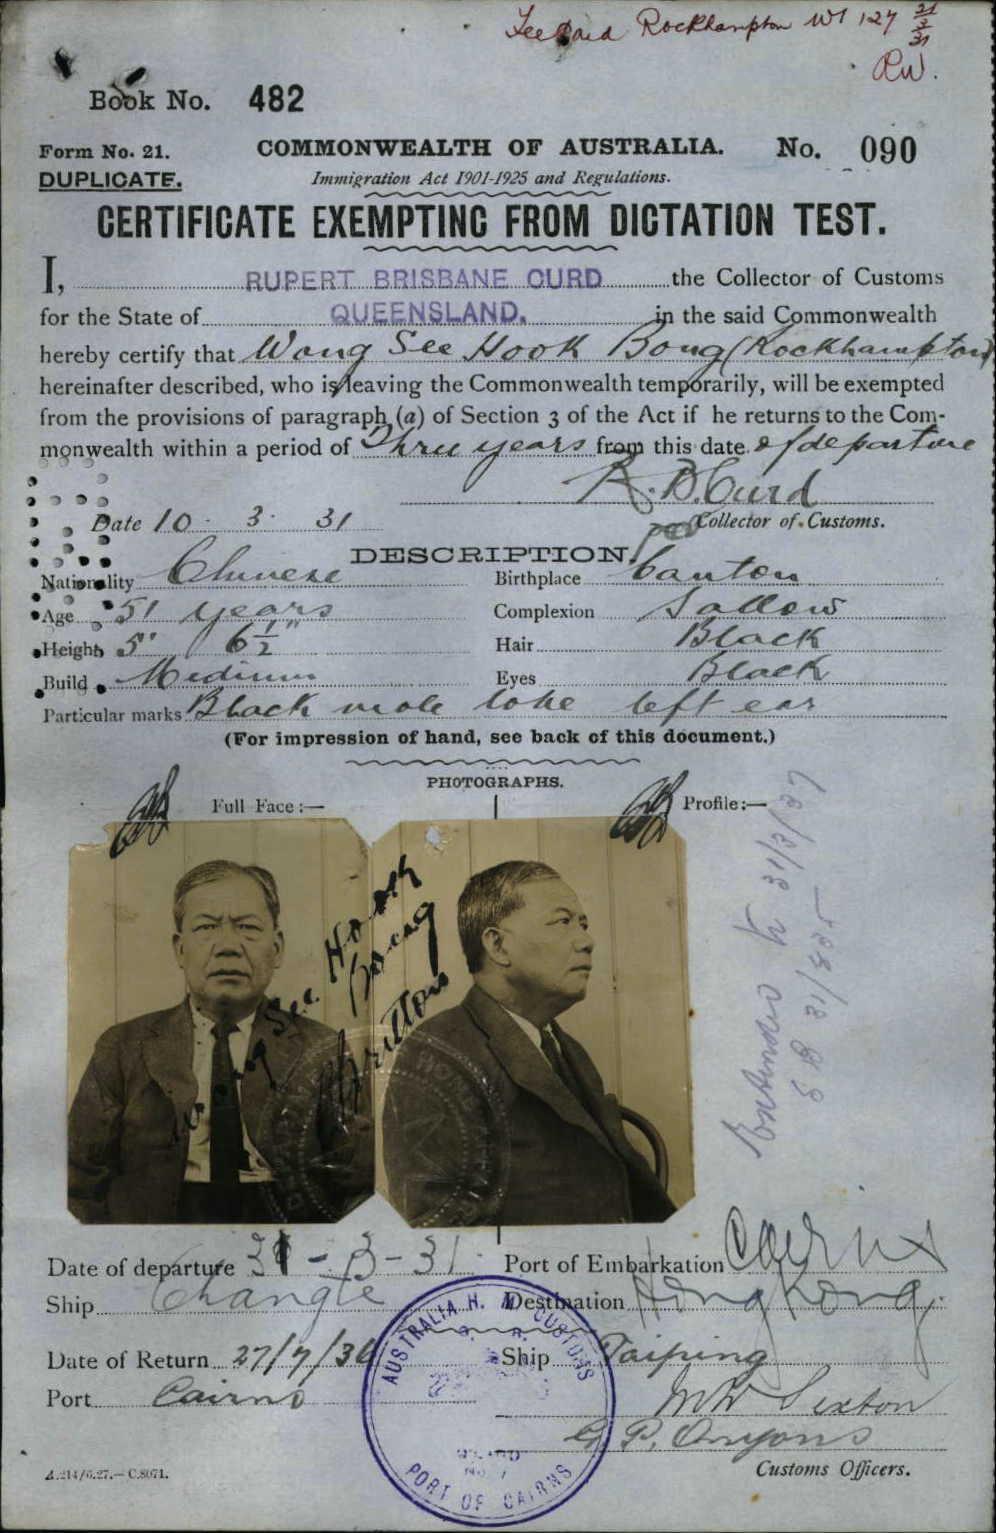 Fee Paid Rockhampton W1 127 21/3/31
RW.
Book No. 482
Form No. 21. COMMONWEALTH OF AUSTRALIA. No. 090
DUPLICATE. Immigration Act 1901-1925 and Regulations.
CERTIFICATE EXEMPTING FROM DICTATION TEST.
I, RUPERT BRISBANE CURD the Collector of Customs
for the State of QUEENSLAND. in the said Commonwealth
hereby certify that Wong See Hook Bong (Rockhampton)
hereinafter described, who is leaving the Commonwealth temporarily, will be exempted
from the provisions of paragraph (a) of Section 3 of the Act if he returns to the Com-
monwealth within a period of Three years from this date of departure
R. B. Curd
Date 10 . 3 . 31 Collector of Customs.
DESCRIPTION.
Nationality Chinese Birthplace Canton
Age 51 years Complexion Sallow
Height 5' 6½" Hair Black
Build Medium Eyes Black
Particular marks Black mole lobe left ear
(For impression of hand, see back of this document.)
PHOTOGRAPHS.
Full Face:— Profile:—
Wong See Hook
Bong
Britton
Extended to 31/3/37
31/535
Date of departure 31-3-31 Port of Embarkation Cairns
Ship Changte Destination Hong Kong.
Date of Return 27/7/36 Ship Taiping
Port Cairns
G. P. Onyons
Customs Officers.
AUSTRALIA H. M. CUSTOMS
PORT OF CAIRNS
A.214/6.27.—C.8071.